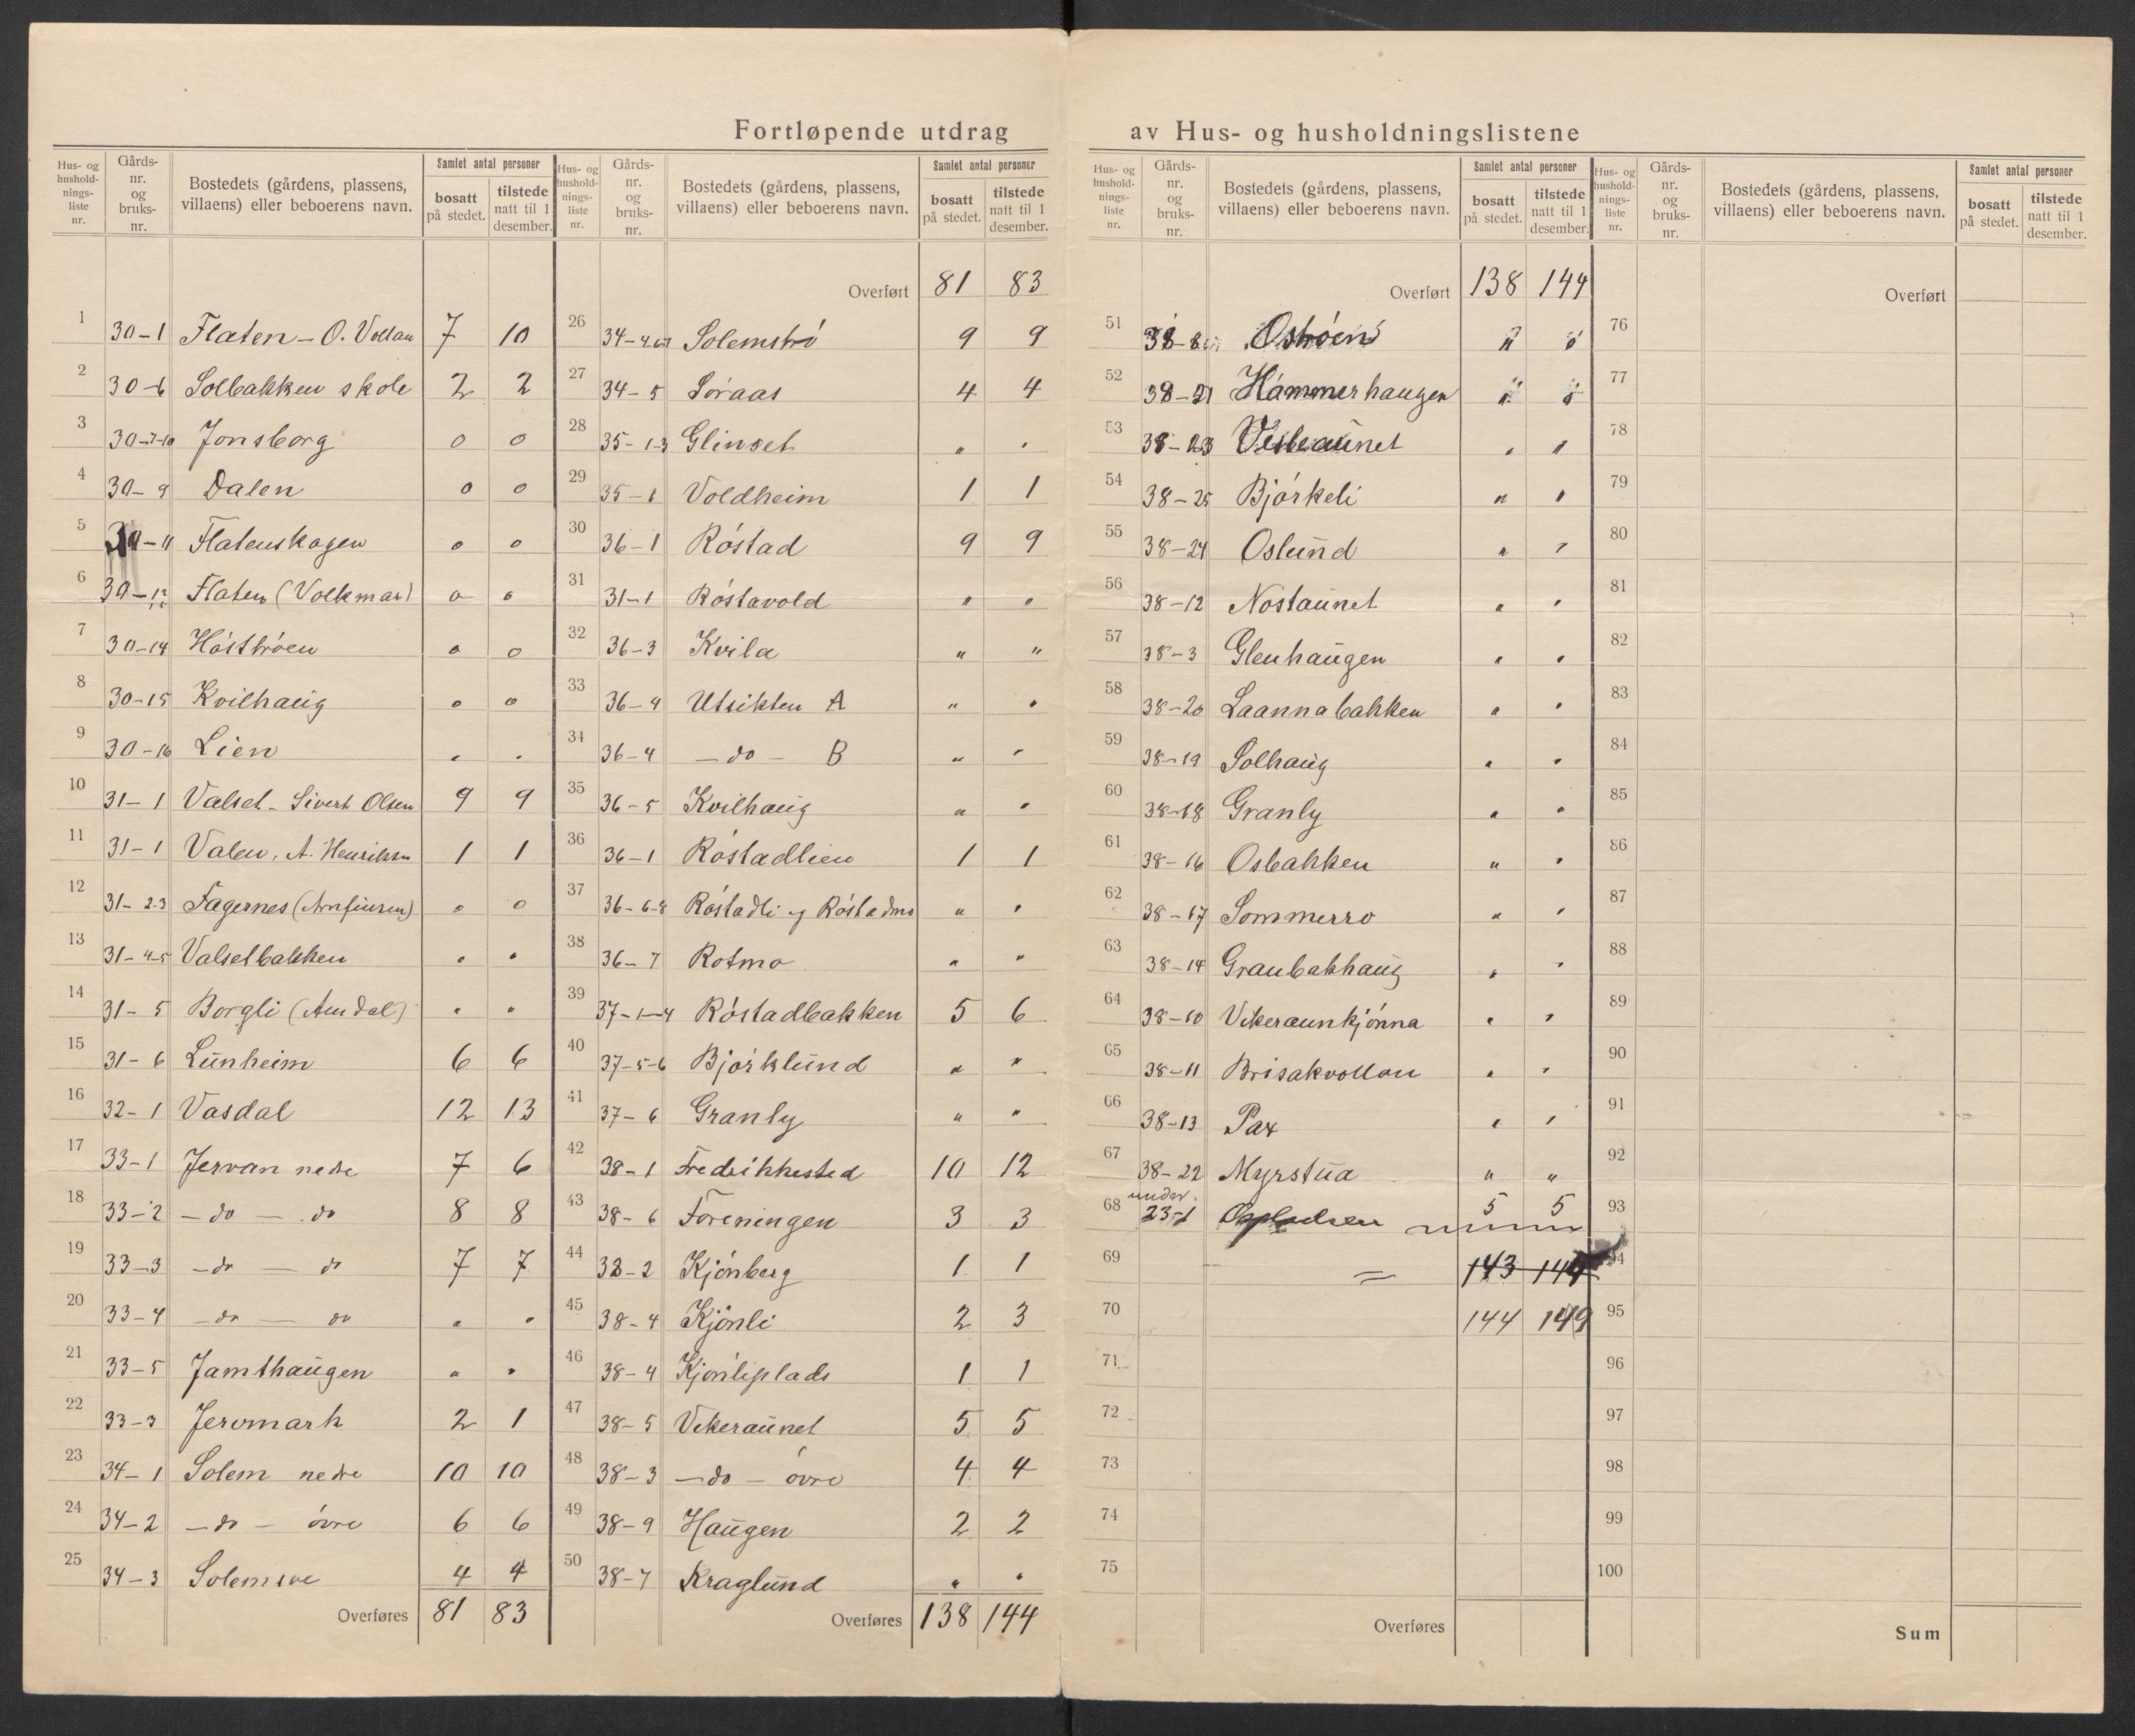 Fortløpende utdrag av Hus- og husholdningslistene
Hus- og husholdnings-liste nr. Gårds-nr. og bruks-nr. Bostedets (gårdens, plassens, villaens) eller beboerens navn. Samlet antal personer bosatt på stedet. tilstede natt til 1 desember.
1 30-1 Flaten - O. Vollan 7 10
2 30-6 Solbakken skole 2 2
3 30-7-10 Jonsborg 0 0
4 30-9 Dalen 0 0
5 30-11 Flatenskogen 0 0
6 30-12 Flaten (Volkmar) 0 0
7 30-14 Hósthróen 0 0
8 30-15 Kvilhaug 0 0
9 30-16 Lien " "
10 31-1 Valset - Sivert Olsen 9 9
11 31-1 Valen, A. Henriksen 1 1
12 31-2-3 Fagernes (Arnfinsen) 0 0
13 31-4-5 Valsetbakken " "
14 31-5 Borgli (Amdal) " "
15 31-6 Lunheim 6 6
16 32-1 Vasdal 12 13
17 33-1 Jervan nedre 7 6
18 33-2 - do - do 8 8
19 33-3 - do - do 7 7
20 33-4 - do - do " "
21 33-5 Jamthaugen " "
22 33-3 Jervmark 2 1
23 34-1 Solem nedre 10 10
24 34-2 - do - óvre 6 6
25 34-3 4 4
Overføres 81 83
Hus- og husholdnings-liste nr. Gårds-nr. og bruks-nr. Bostedets (gårdens, plassens, villaens) eller beboerens navn. Samlet antal personer bosatt på stedet. tilstede natt til 1 desember.
Overført 81 83
26 Solemstró 9 9
27 34-5 Sóraas 4 4
28 35-1-3 Glinset " "
29 35-1 Voldheim 1 1
30 36-1 Róstad 9 9
31 31-1 Róstavold " "
32 36-3 Kvila " "
33 36-4 Utsikten A " "
34 36-4 - do - B " "
35 36-5 Kvilhaug " "
36 36-1 Róstadlien 1 1
37 36-6-8 Róstadli og Róstadmo " "
38 36-7 Rotmo " "
39 37-1-4 Róstadbakken 5 6
40 37-5-6 Bjórklund " "
41 37-6 Granly " "
42 38-1 Fredrikkested 10 12
43 38-6 Foreningen 3 3
44 38-2 Kjónberg 1 1
45 38-4 Kjónli 2 3
46 38-4 Kjónliplads 1 1
47 38-5 Vikeraunet 5 5
48 38-3 - do - óvre 4 4
49 38-9 Haugen 2 2
50 38-7 Kraglund " "
Overføres 138 144
Hus- og husholdnings-liste nr. Gårds-nr. og bruks-nr. Bostedets (gårdens, plassens, villaens) eller beboerens navn. Samlet antal personer bosatt på stedet. tilstede natt til 1 desember.
Overført 138 144
51 38-8 " "
52 38-21 Hammerhaugen " "
53 38-23 Vesteaunet " "
54 38-25 Bjórkeli " "
55 38-24 Oslund " "
56 38-12 Nóstaunet " "
57 38-3 Glenhaugen " "
58 38-20 Laannabakken " "
59 38-19 Solhaug " "
60 38-18 Granly " "
61 38-16 Osbakken " "
62 38-17 Sommerro " "
63 38-14 Granbakhaug " "
64 38-10 Vikeraunkjónna " "
65 38-11 Brisakvollan " "
66 38-13 Pax " "
67 38-22 Myrstua " "
68 under. 23-1 5 5
69 = 143
70 144 149
71
72
73
74
75
Overføres
Hus- og husholdnings-liste nr. Gårds-nr. og bruks-nr. Bostedets (gårdens, plassens, villaens) eller beboerens navn. Samlet antal personer bosatt på stedet. tilstede natt til 1 desember.
Overført
76
77
78
79
80
81
82
83
84
85
86
87
88
89
90
91
92
93
94
95
96
97
98
99
100
Sum